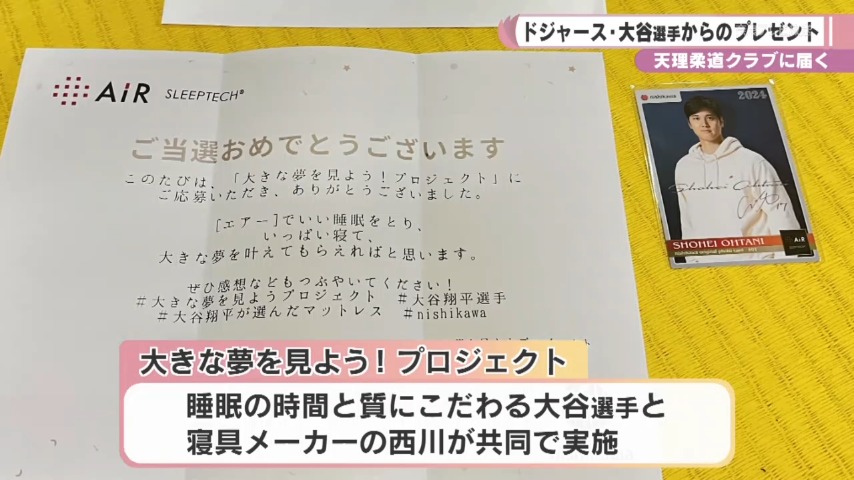 ドジャース・大谷選手からのプレゼント
天理柔道クラブに届く
AiR SLEEPTECH®
ご当選おめでとうございます
このたびは、「大きな夢を見よう！プロジェクト」に
ご応募いただき、ありがとうございました。
[エアー]でいい睡眠をとり、
いっぱい寝て、
大きな夢を叶えてもらえればと思います。
ぜひ感想などもつぶやいてください！
＃大きな夢を見ようプロジェクト ＃大谷翔平選手
＃大谷翔平が選んだマットレス ＃nishikawa
nishikawa 2024
Shohei Ohtani
SHOHEI OHTANI
AiR
大きな夢を見よう！プロジェクト
睡眠の時間と質にこだわる大谷選手と
寝具メーカーの西川が共同で実施